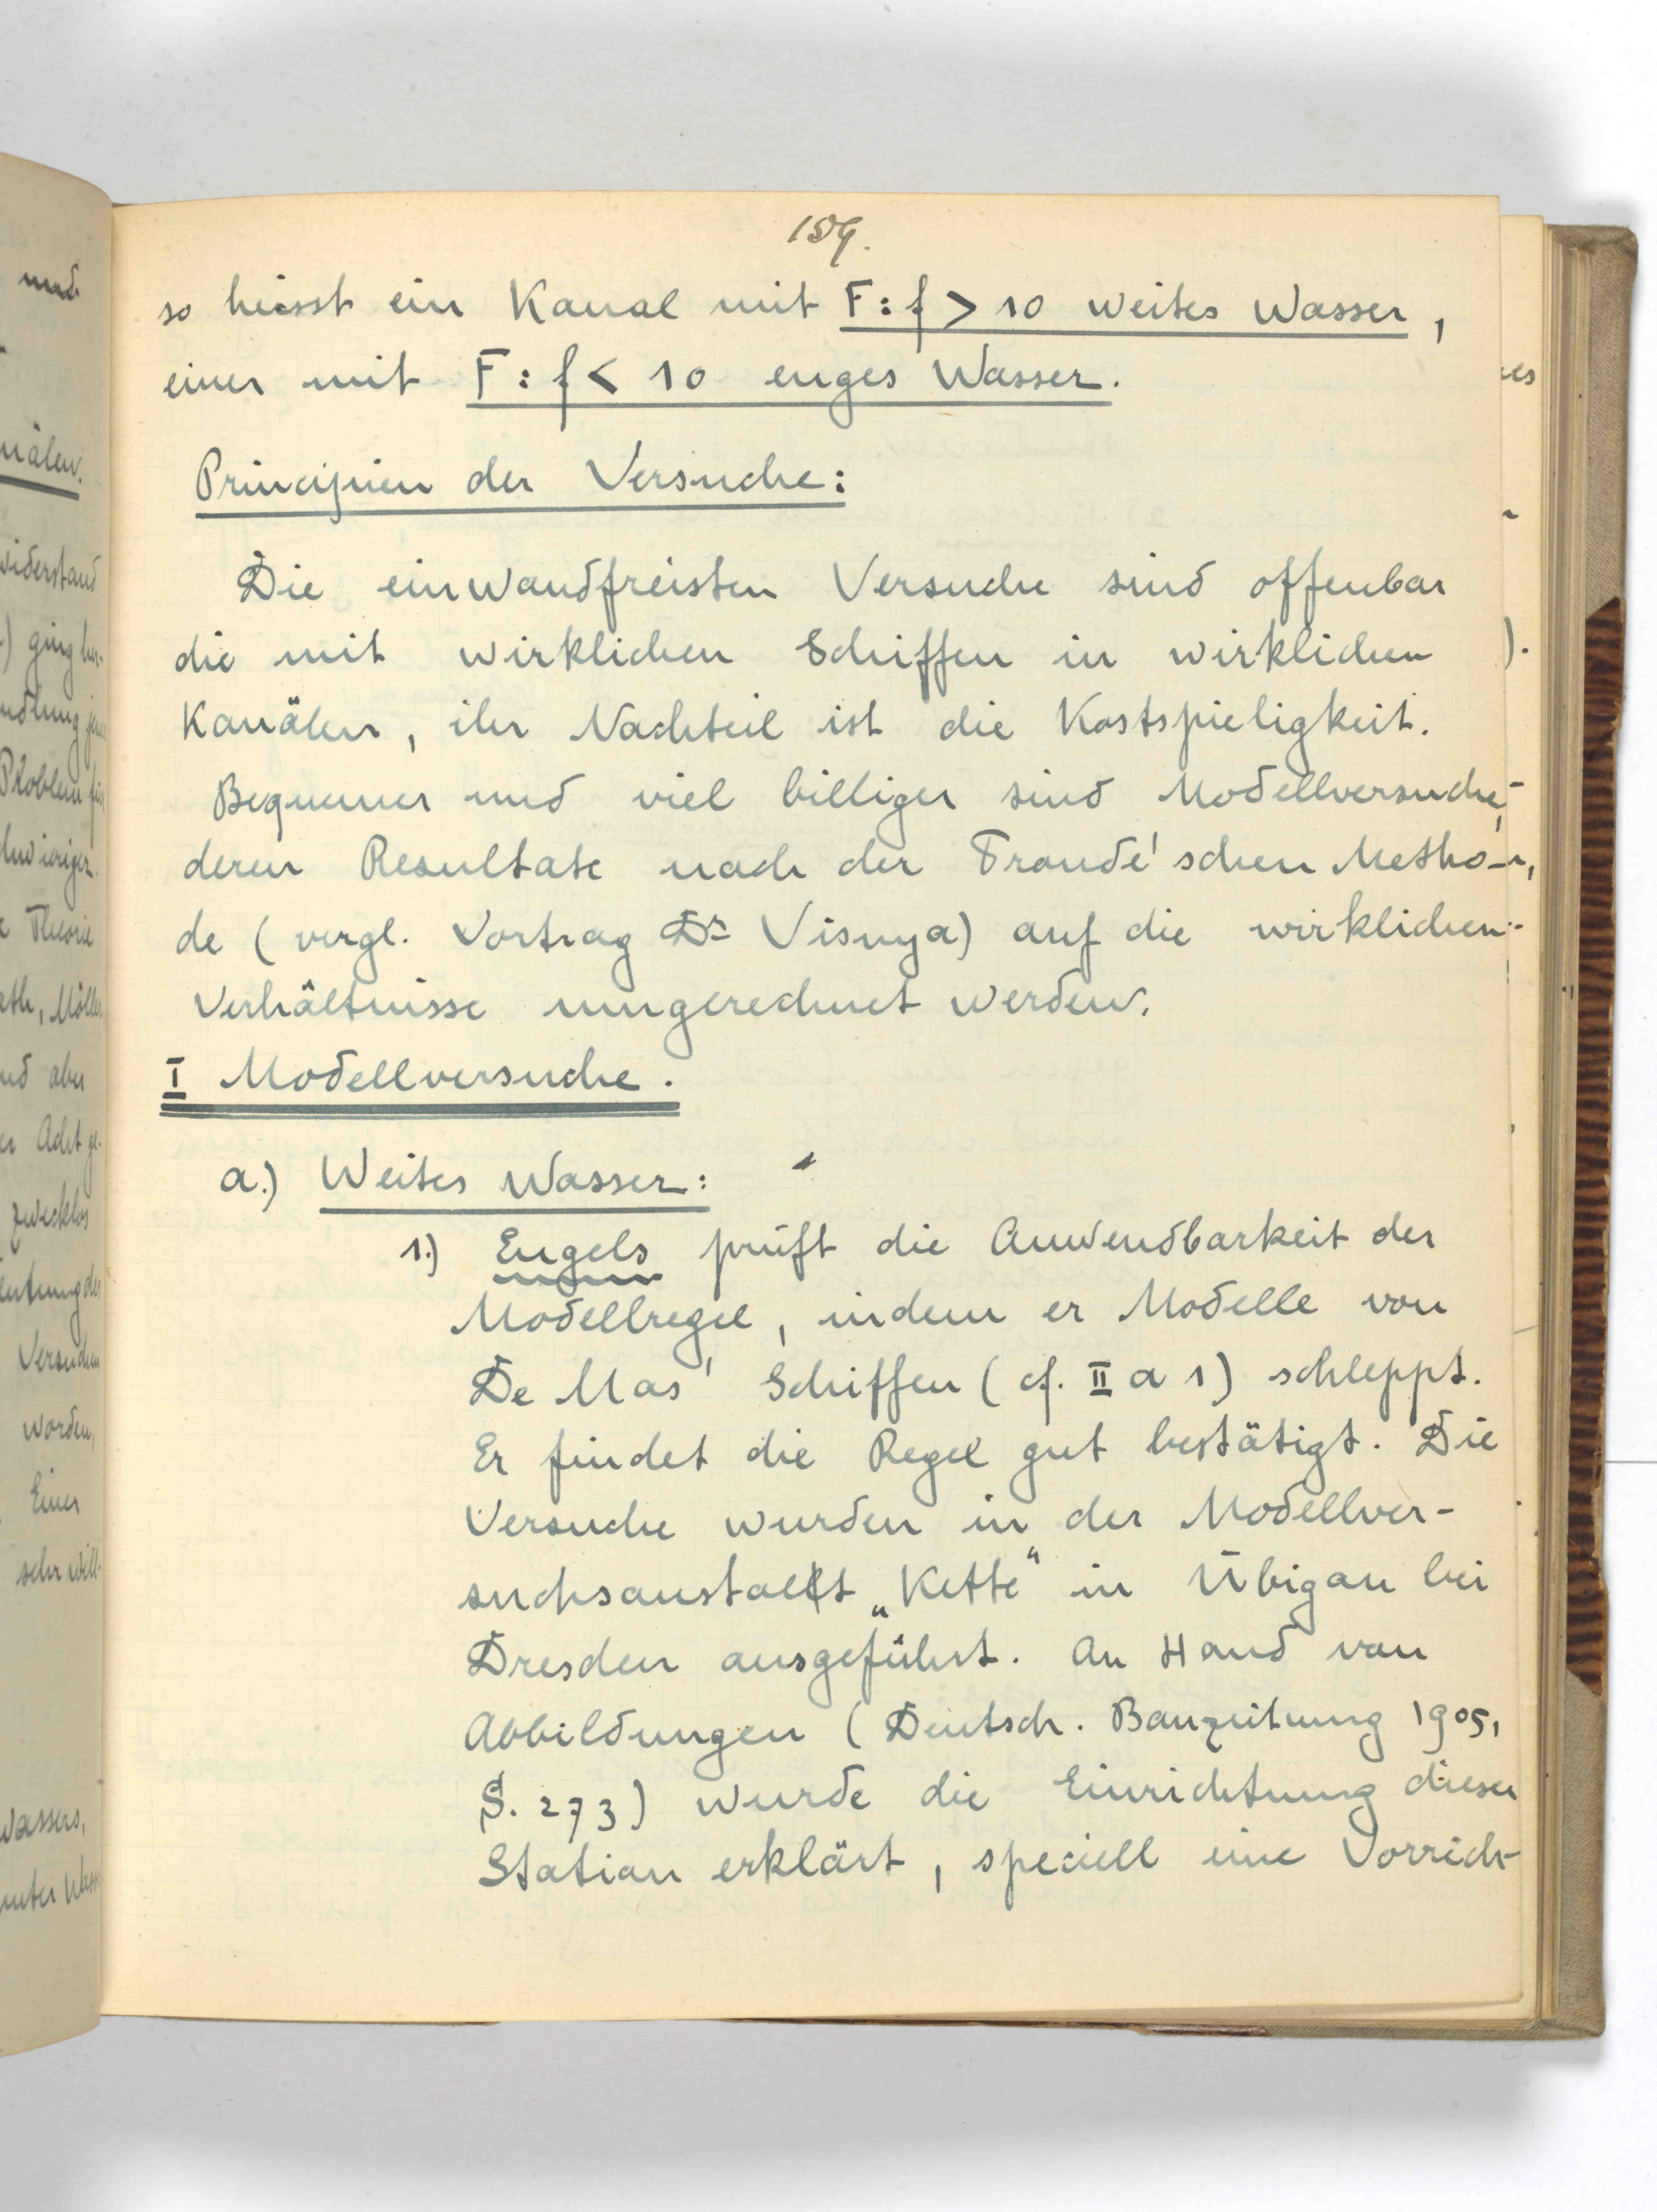 159.
so heisst ein Kanal mit F:f > 10 weites Wasser,
einer mit F:f < 10 enges Wasser.
Principien der Versuche:
Die einwandfreisten Versuche sind offenbar
die mit wirklichen Schiffen in wirklichen
Kanälen, ihr Nachteil ist die Kostspieligkeit.
Bequemer und viel billiger sind Modellversuche,
deren Resultate nach der Froude'schen Metho-
de (vergl. Vortrag Dr Visnya) auf die wirklichen
Verhältnisse umgerechnet werden.
I Modellversuche.
a.) Weites Wasser:
1.) Engels prüft die Anwendbarkeit der
Modellregel, indem er Modelle von
De Mas' Schiffen (cf. II a 1) schleppt.
Er findet die Regel gut bestätigt. Die
Versuche wurden in der Modellver-
suchsanstalt „Kette“ in Übigau bei
Dresden ausgeführt. An Hand von
Abbildungen (Deutsch. Bauzeitung 1905,
S. 273) wurde die Einrichtung dieser
Station erklärt, speciell eine Vorrich-